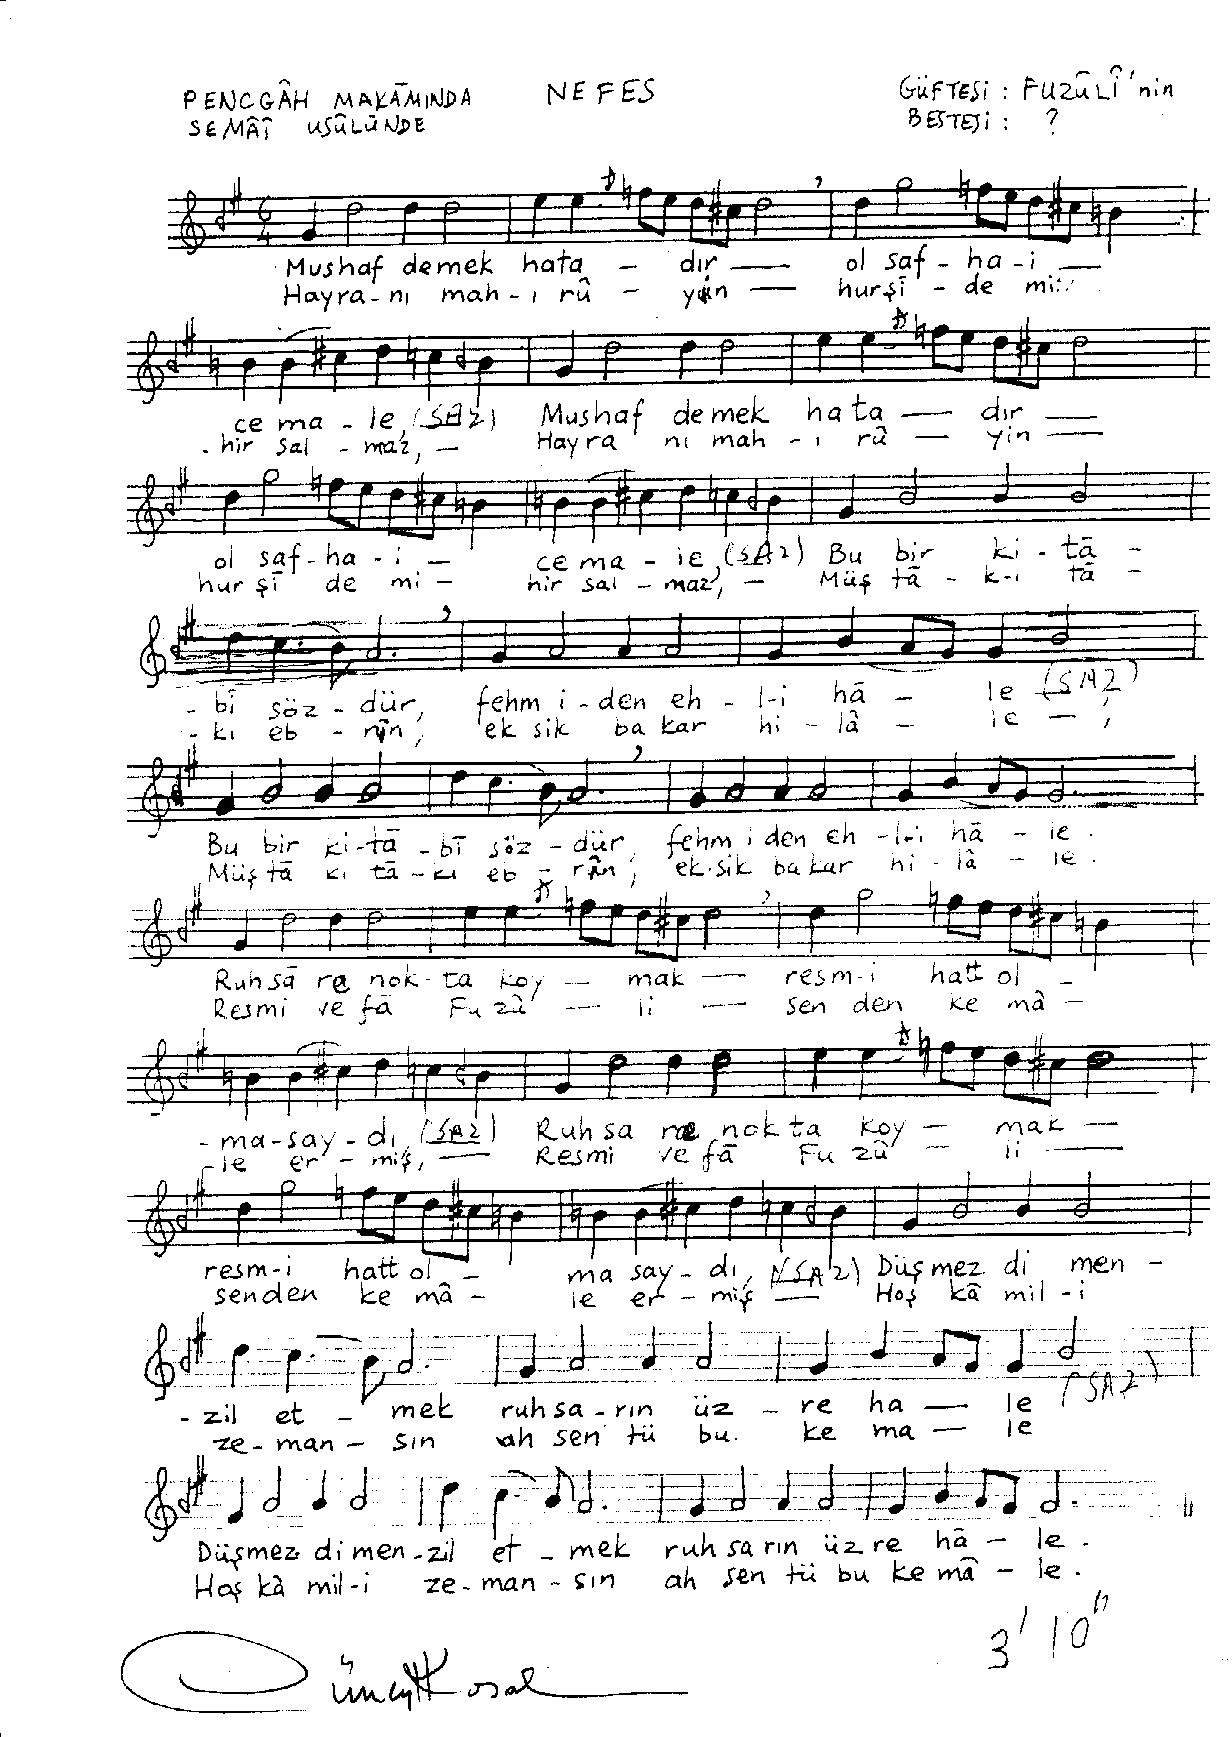 PENCGÂH MAKĀMINDA NEFES GÜFTESİ : FUZŪLÎ'nin
SEMÂÎ USŪLÜNDE BESTESİ : ?
Mushaf demek hata - dır — ol saf - ha - i —
Hayra - nı mah - ı rû - yin — hurşī - de mi
ce ma - le, (SAZ) Mushaf demek hata — dır —
- hir sal - maz, — Hayra nı mah - ı rû — yin —
ol saf - ha - i — ce ma - le, (SAZ) Bu bir ki - tā -
hur şī de mi - hir sal - maz, — Müş tā - k-ı tā -
- bī söz - dür, fehm i - den eh - l-i hā - le (SAZ)
- kı eb - rûn, ek sik ba kar hi - lâ - le — ,
Bu bir ki-tā - bī söz - dür, fehm i den eh - l-i hā - le .
Müş tā kı tā - kı eb - rûn, ek-sik bakar hi - lâ - le .
Ruhsā re nok-ta koy — mak — resm-i hatt ol -
Resmi ve fā Fu zû — li — sen den ke mâ -
- ma-say - dı, (SAZ) Ruhsa re nok ta koy — mak —
- le er - miş, — Resmi ve fā Fu zû — li —
resm-i hatt ol - ma say - dı, (SAZ) Düşmez di men -
senden ke mâ - le er - miş — Hoş kâ mil - i
- zil et - mek ruhsa - rın üz - re ha — le (SAZ)
ze - man - sın ah sen tü bu ke ma — le
Düşmez di men-zil et - mek ruh sa rın üz re hā - le .
Hoş kâ mil-i ze - man - sın ah sen tü bu ke mâ - le .
3' 10"